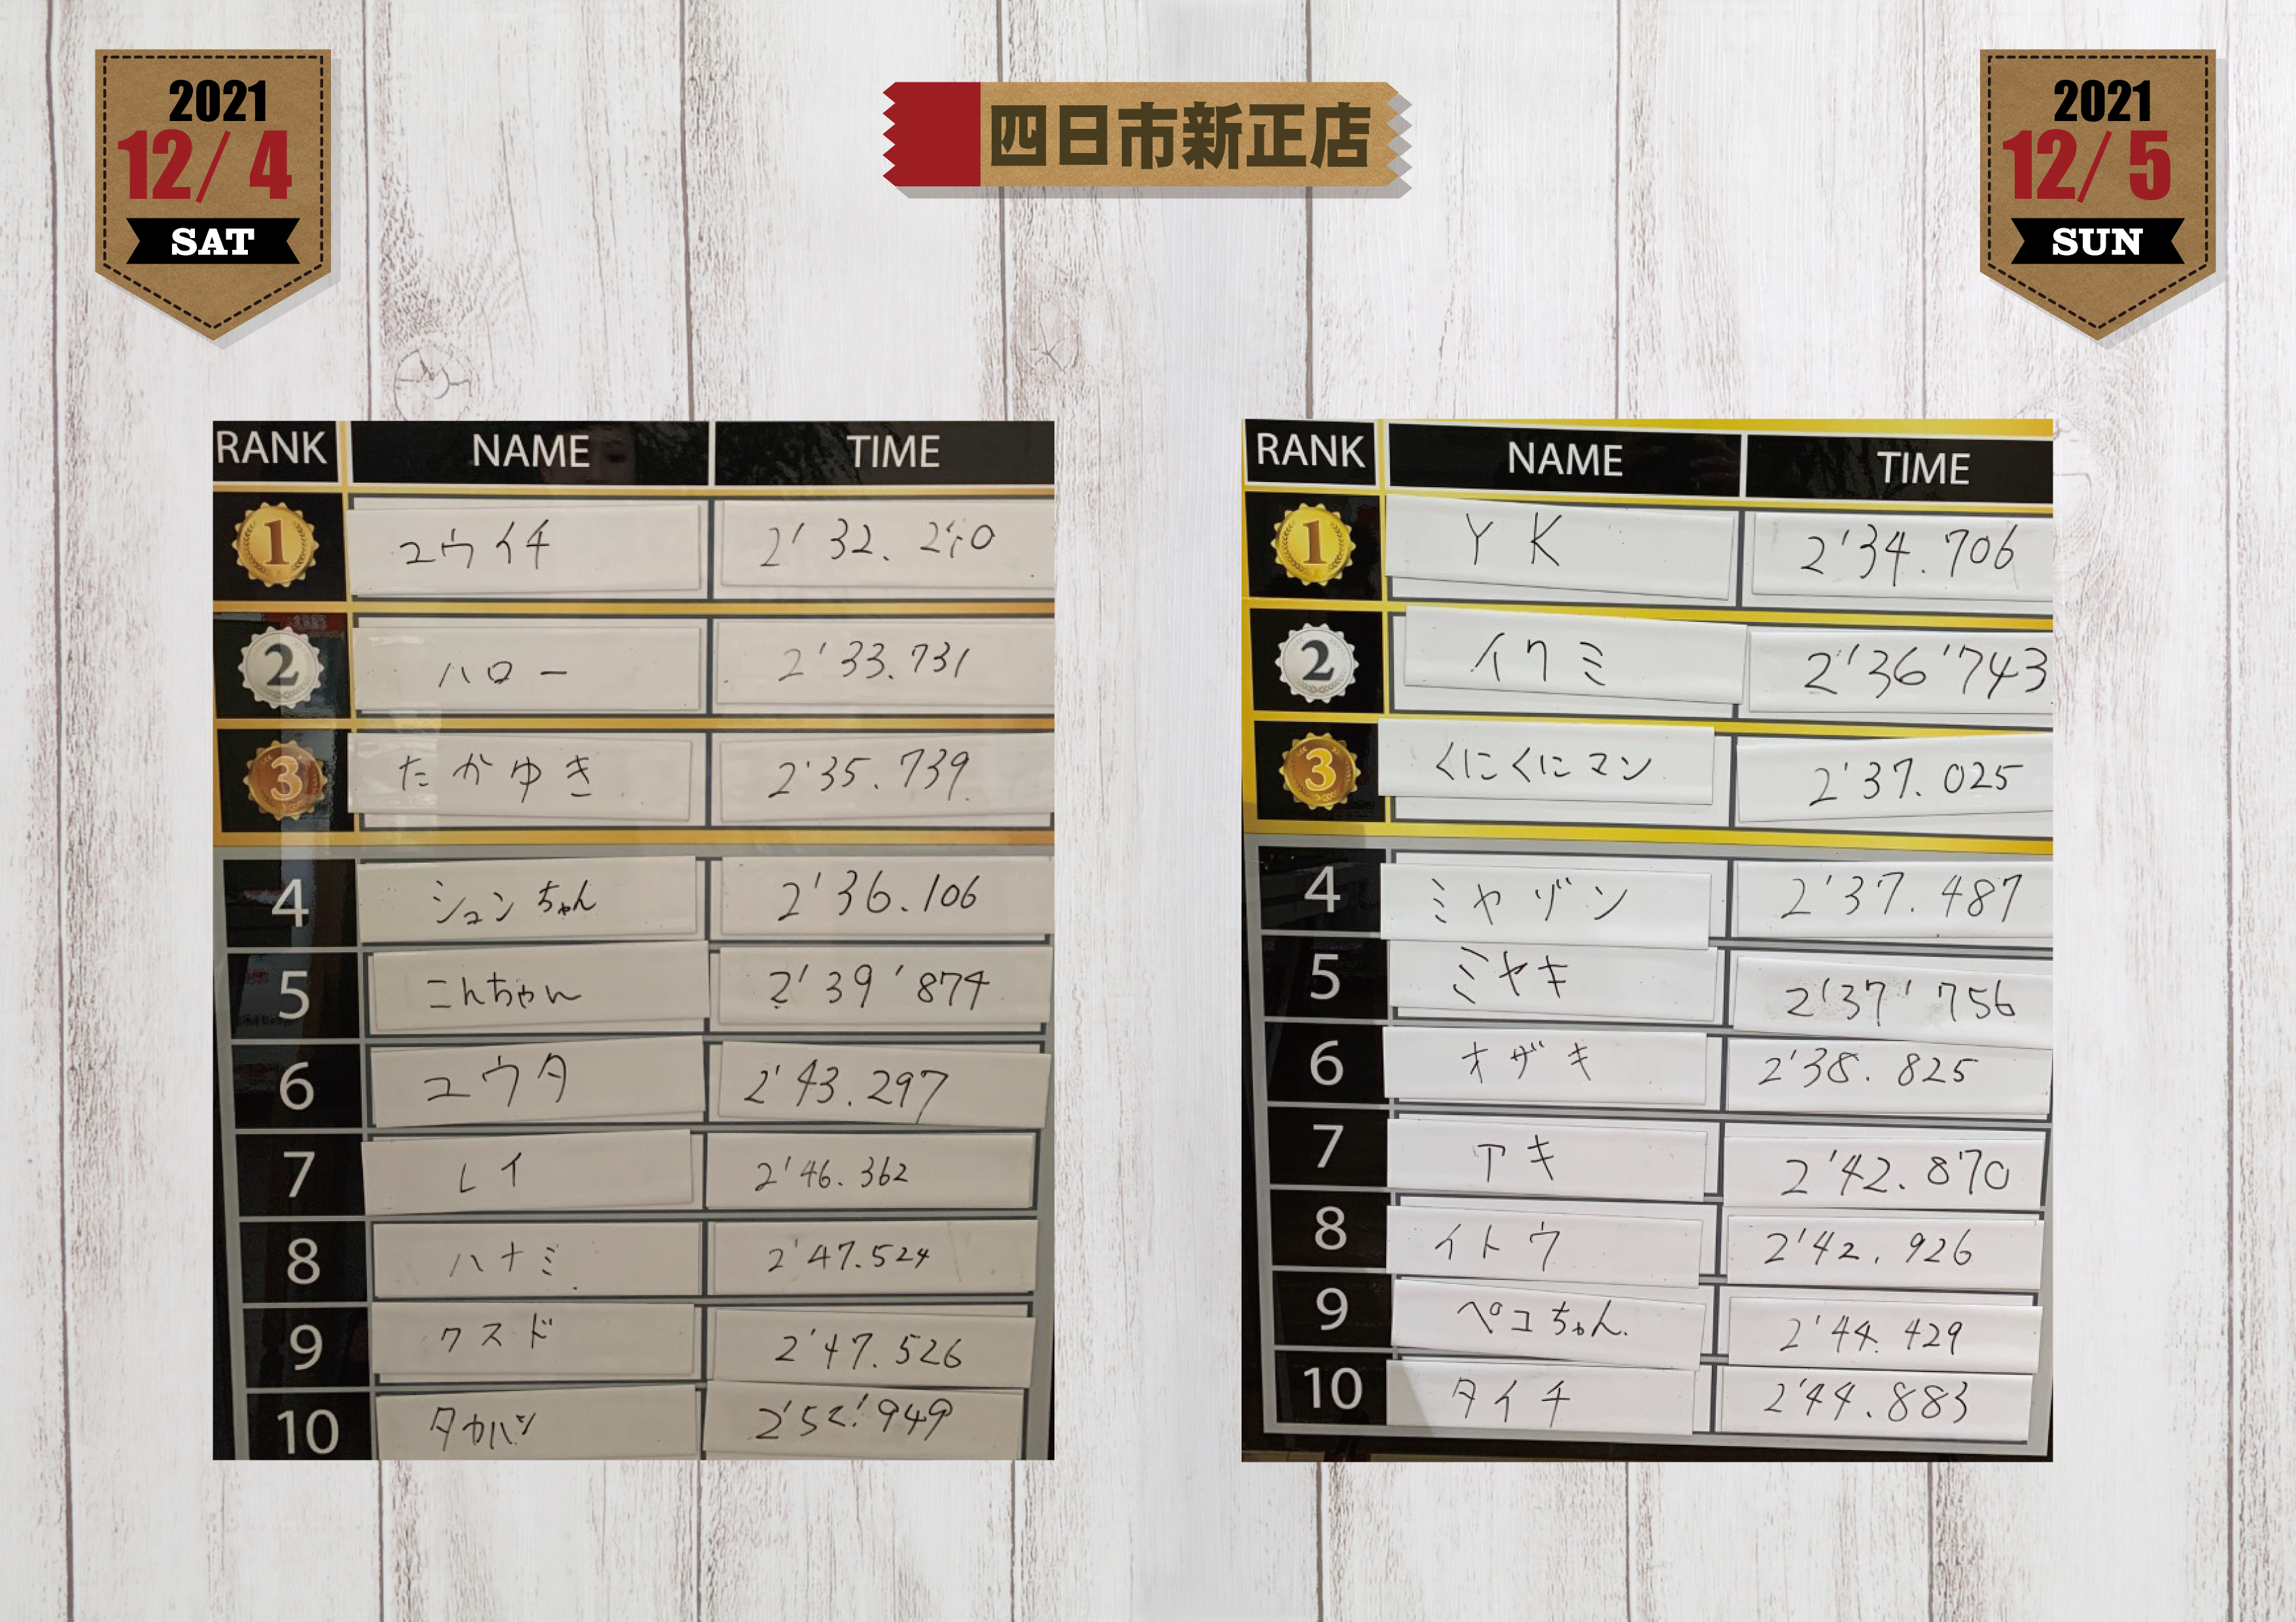 2021
12/4
SAT
四日市新正店
2021
12/5
SUN
RANK NAME TIME
1 ユウイチ 2'32.
2 ハロー 2'33.731
3 たかゆき 2'35.739
4 シュンちゃん 2'36.106
5 こんちゃん 2'39'874
6 ユウタ 2'43.297
7 レイ 2'46.362
8 ハナミ 2'47.524
9 クスド 2'47.526
10 タカハシ 2'52'949
RANK NAME TIME
1 YK 2'34.706
2 イクミ 2'36'743
3 くにくにマン 2'37.025
4 ミヤゾン 2'37.487
5 ミヤキ 2'37'756
6 オザキ 2'38.825
7 アキ 2'42.870
8 イトウ 2'42.926
9 ペコちゃん 2'44.429
10 タイチ 2'44.883